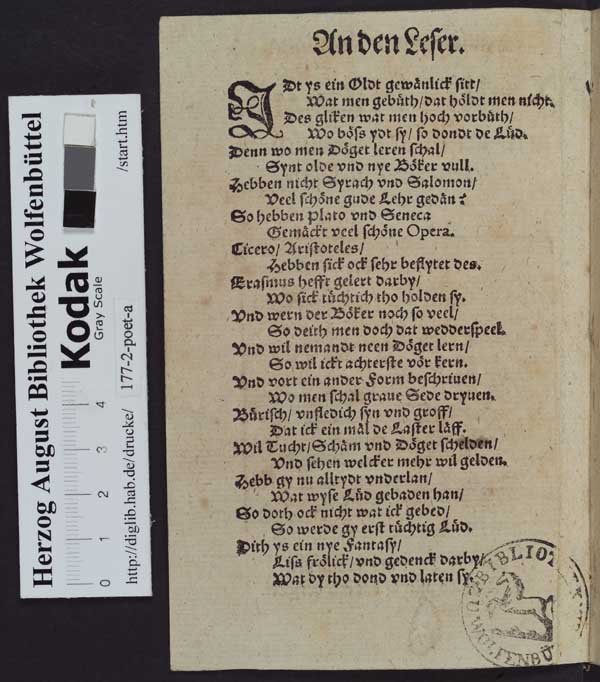 An den Leser.
IDt ys ein Oldt gewänlick sitt/
Wat men gebüth/dat höldt men nicht.
Des gliken wat men hoch vorbüth/
Wo böss ydt sy/ so dondt de Lüd.
Denn wo men Döget leren schal/
Synt olde vnd nye Böker vull.
Hebben nicht Syrach vnd Salomon/
Veel schöne gude Lehr gedän?
So hebben Plato vnd Seneca
Gemäckt veel schöne Opera.
Cicero/ Aristoteles/
Hebben sick ock sehr beflytet des.
Erasmus hefft gelert darby/
Wo sick tüchtich tho holden sy.
Vnd wern der Böker noch so veel/
So deith men doch dat wedderspeel.
Vnd wil nemandt neen Döget lern/
So wil ickt achterste vör kern.
Vnd vort ein ander Form beschriuen/
Wo men schal graue Sede dryuen.
Bürisch/ vnfledich syn vnd groff/
Dat ick ein mäl de Laster läff.
Wil Tucht/Schäm vnd Döget schelden/
Vnd sehen welcker mehr wil gelden.
Hebb gy nu alltydt vnderlan/
Wat wyse Lüd gebaden han/
So doth ock nicht wat ick gebed/
So werde gy erst tüchtig Lüd.
Dith ys ein nye Fantasy/
Liss frölick/vnd gedenck darby/
Wat dy tho dond vnd laten sy.
BIBLIOT
WOLFENBÜ
Herzog August Bibliothek Wolfenbüttel
Kodak
Gray Scale
0 1 2 3 4
http://diglib.hab.de/drucke/ 177-2-poet-a /start.htm